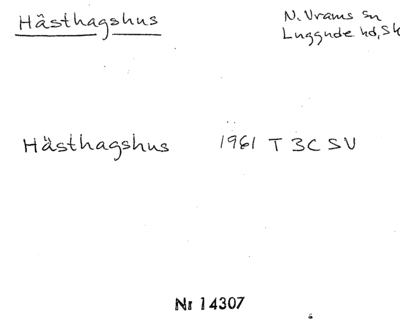 Hästhagshus
N. Vrams sn
Luggude hd, Sk
Hästhagshus 1961 T 3C SV
Nr 14307